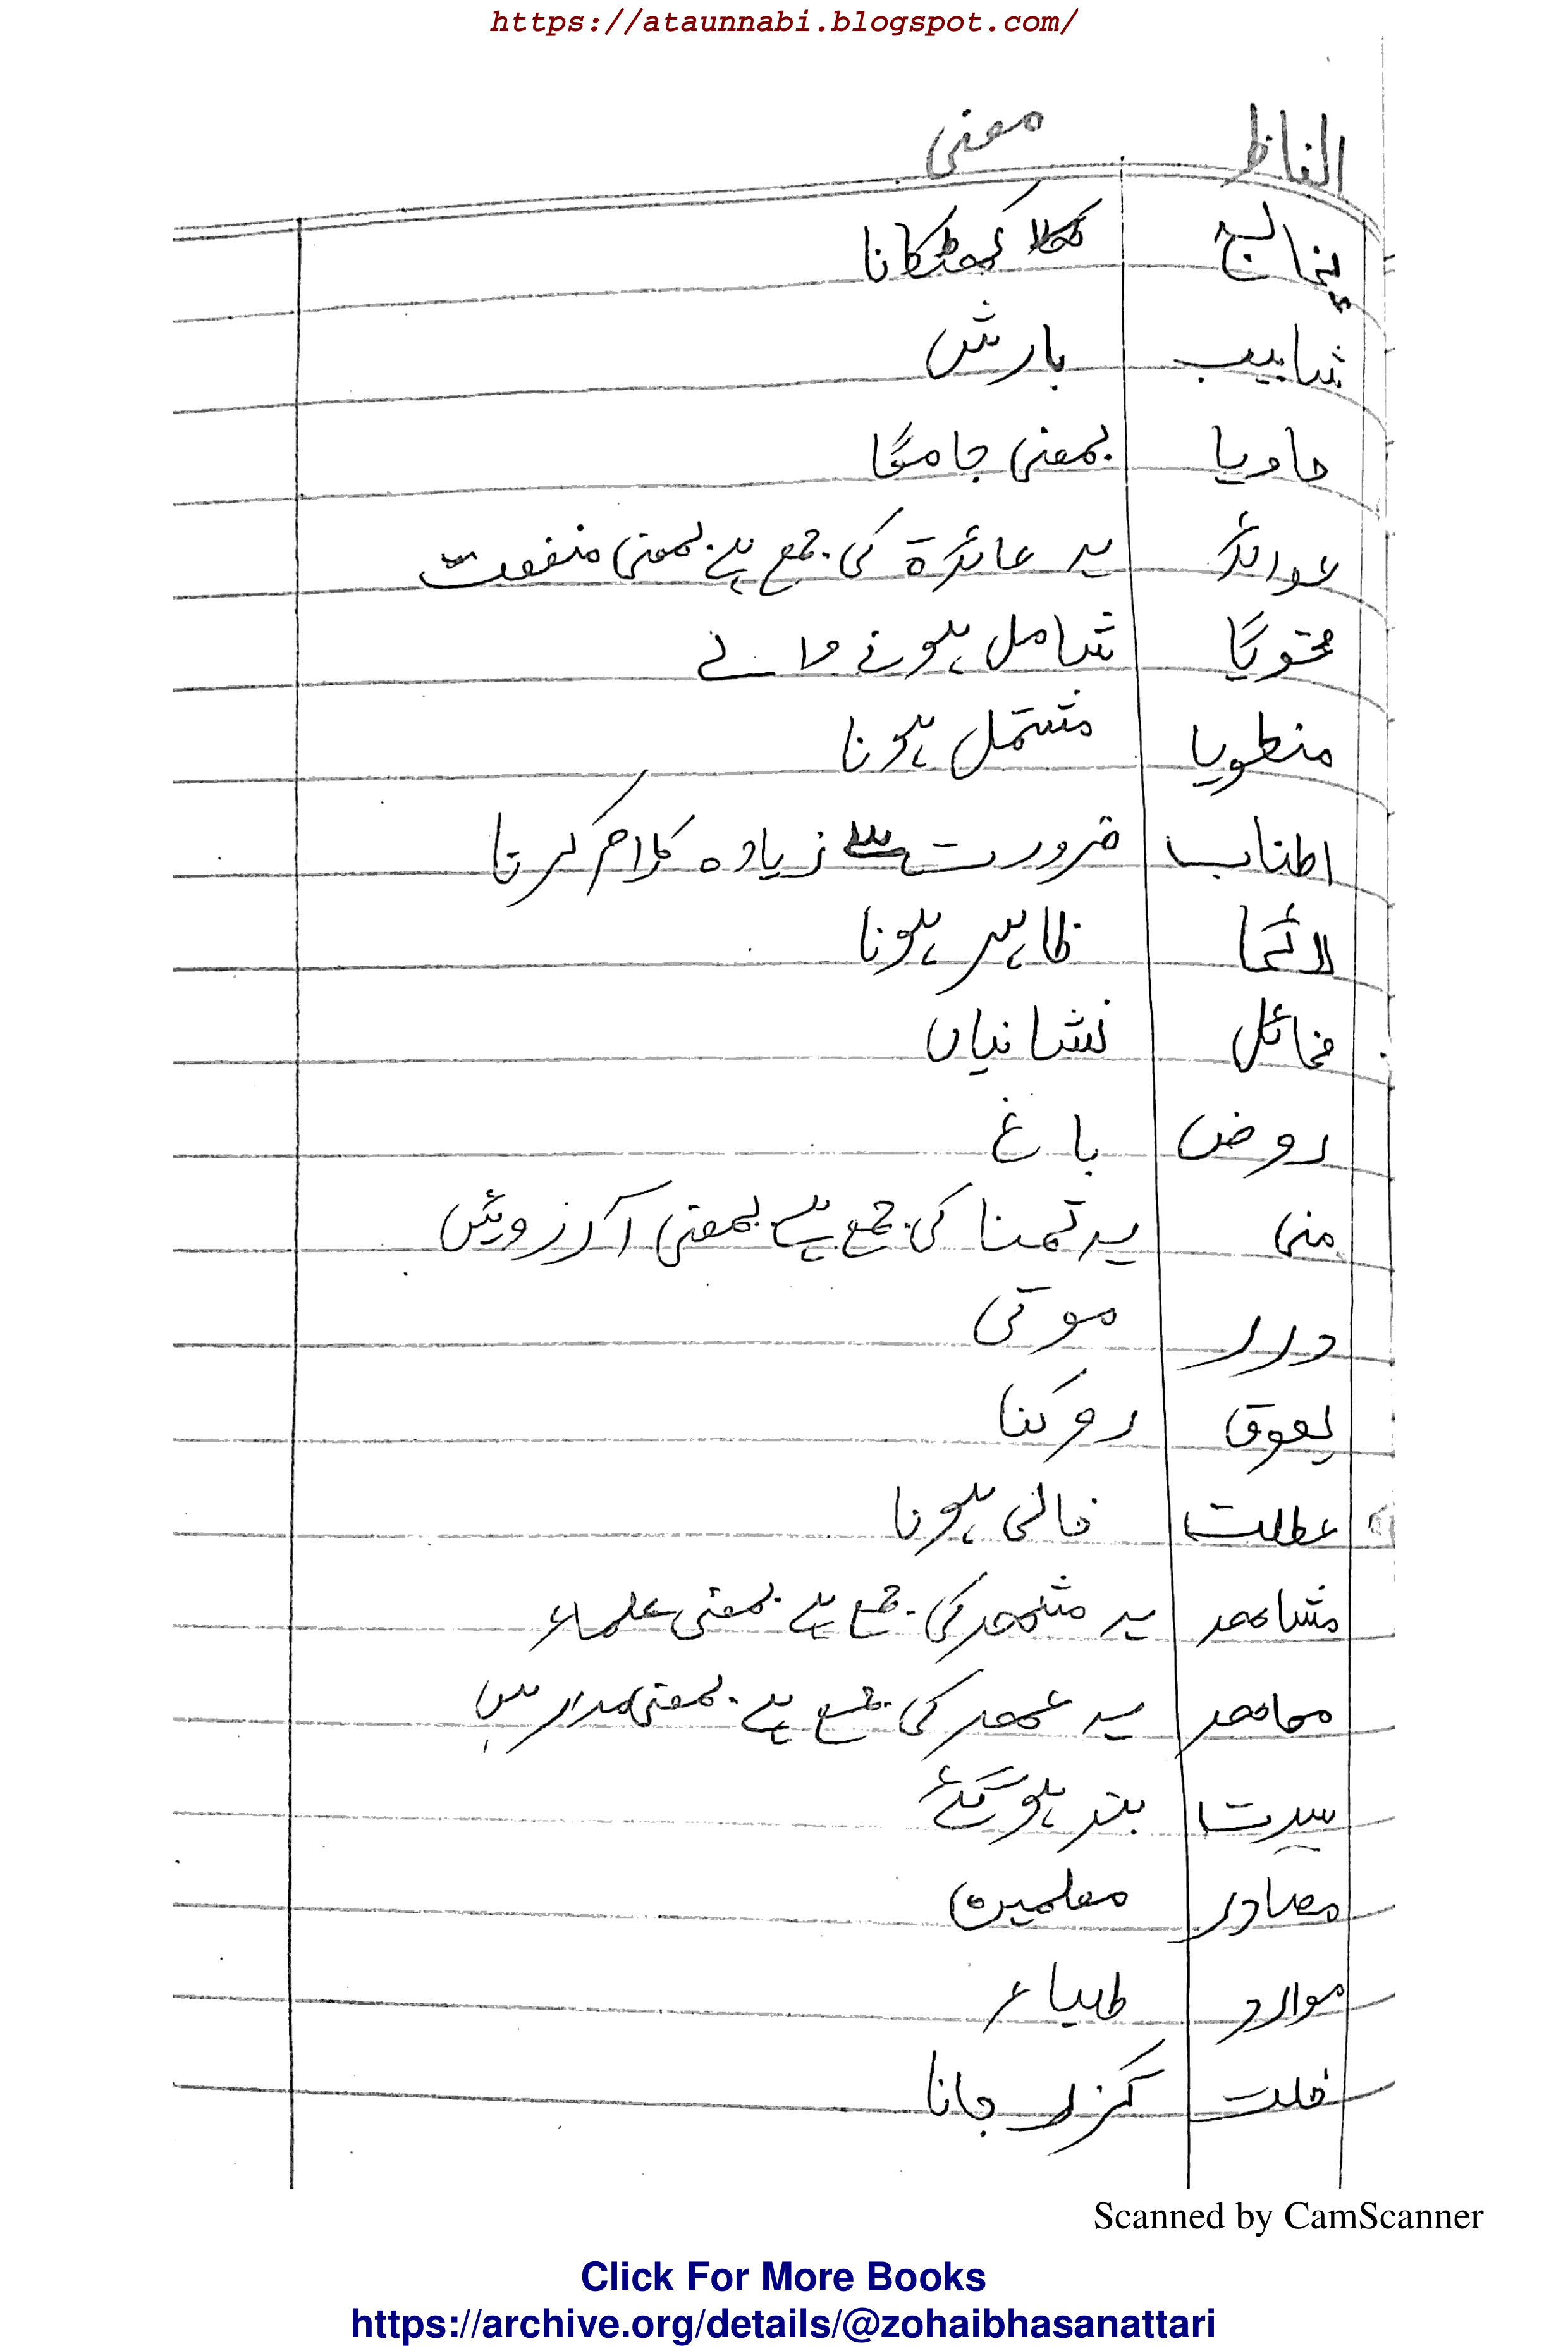 https://ataunnabi.blogspot.com/
الفاظ معنی
یخالج کھٹکانا
شابیب بارش
حاویا بمعنی جامعًا
عوائد یہ عائدۃ کی جمع ہے بمعنی منفعت
محتویًا شامل ہونے والے
منطویا مشتمل ہونا
اطناب ضرورت سے زیادہ کلام کرنا
لائحا ظاہر ہونا
مخائل نشانیاں
روض باغ
منی یہ تمنا کی جمع ہے بمعنی آرزوئیں
درر موتی
یعوق روکنا
عطلت خالی ہونا
مشاھد یہ مشھد کی جمع ہے بمعنی علماء
معاھد یہ عھد کی جمع ہے بمعنی مدارس
سدت بند ہو گئے
مصادر معلمین
موارد طلباء
خلت گزر جانا
Scanned by CamScanner
Click For More Books
https://archive.org/details/@zohaibhasanattari